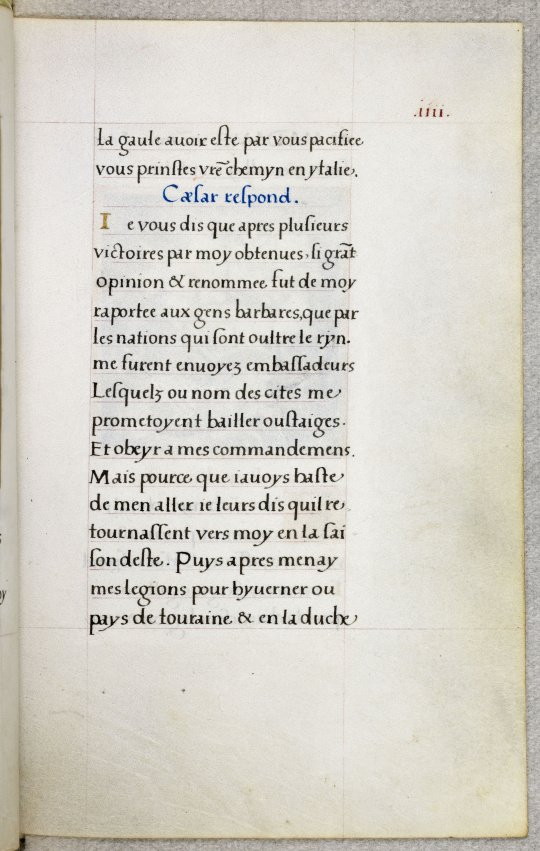 .iiii.
la gaule auoir este par vous pacifiee
vous prinstes vr̃e chemyn en ytalie.
Cæsar respond.
Ie vous dis que apres plusieurs
victoires par moy obtenues, si grãt
opinion & renommee fut de moy
raportee aux gens barbares, que par
les nations qui sont oultre le ryn.
me furent enuoyez embassadeurs
Lesquelz ou nom des cites me
prometoyent bailler oustaiges.
Et obeyr a mes commandemens.
Mais pource que iauoys haste
de men aller ie leurs dis quil re
tournassent vers moy en la sai
son deste. Puys apres menay
mes legions pour hyuerner ou
pays de touraine & en la duche